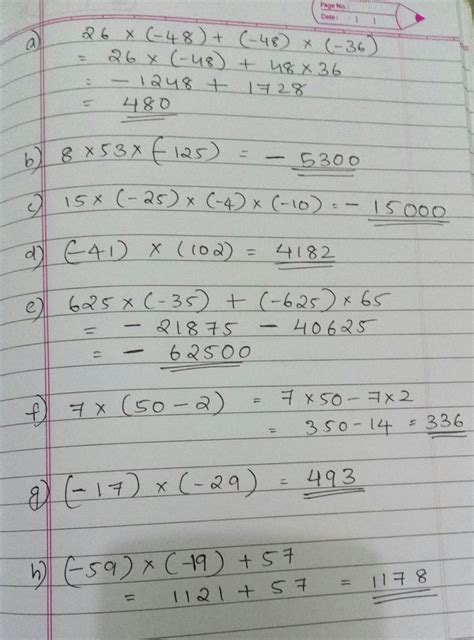 Page No.:
Date: | |
a) 26 × (-48) + (-48) × (-36)
= 26 × (-48) + 48 × 36
= - 1248 + 1728
= 480
b) 8 × 53 × (-125) = - 5300
c) 15 × (-25) × (-4) × (-10) = - 15000
d) (-41) × (102) = 4182
e) 625 × (-35) + (-625) × 65
= - 21875 - 40625
= - 62500
f) 7 × (50 - 2) = 7 × 50 - 7 × 2
= 350 - 14 = 336
g) (-17) × (-29) = 493
h) (-59) × (-19) + 57
= 1121 + 57 = 1178